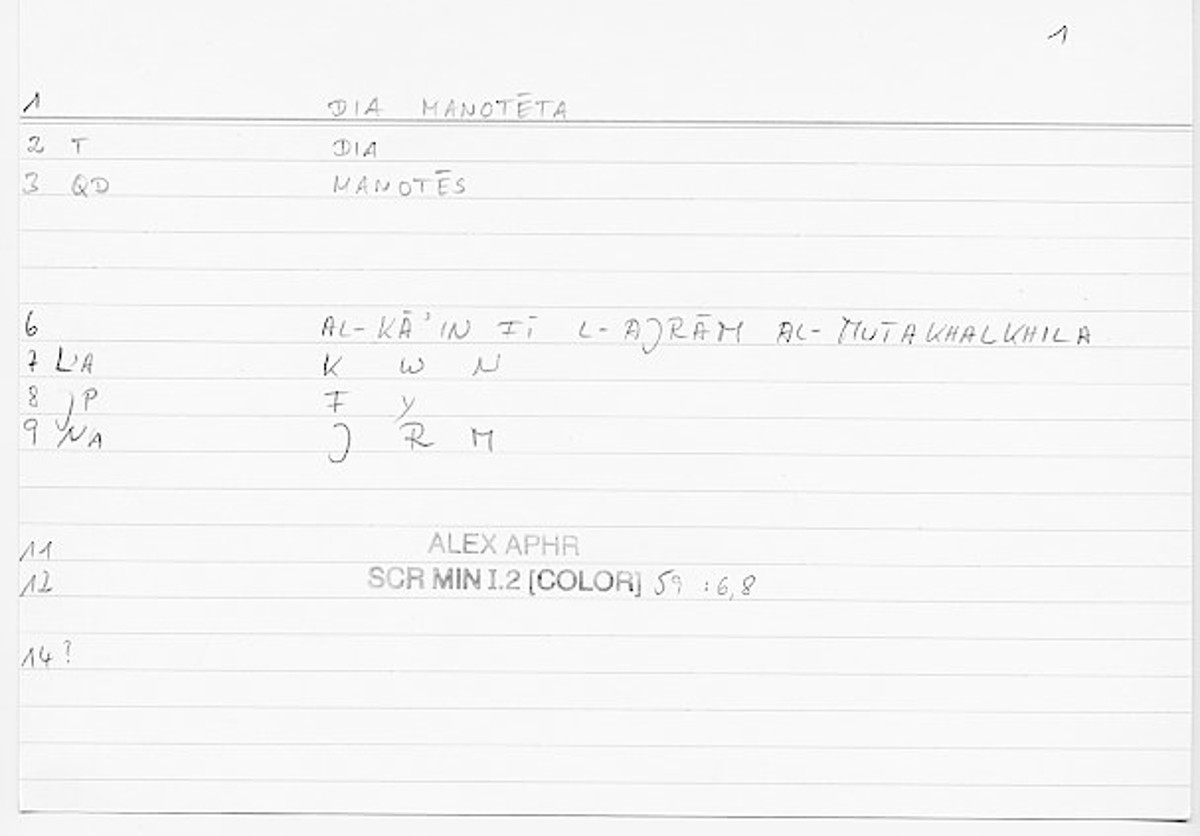 1
1 DIA MANOTĒTA
2 T DIA
3 QD MANOTĒS
6 AL-KĀʾIN FĪ L-AJRĀM AL-MUTAKHALKHILA
7 LʾA K W N
8 JP F Y
9 NA J R M
11 ALEX APHR
12 SCR MIN I.2 [COLOR] 59 :6,8
14?